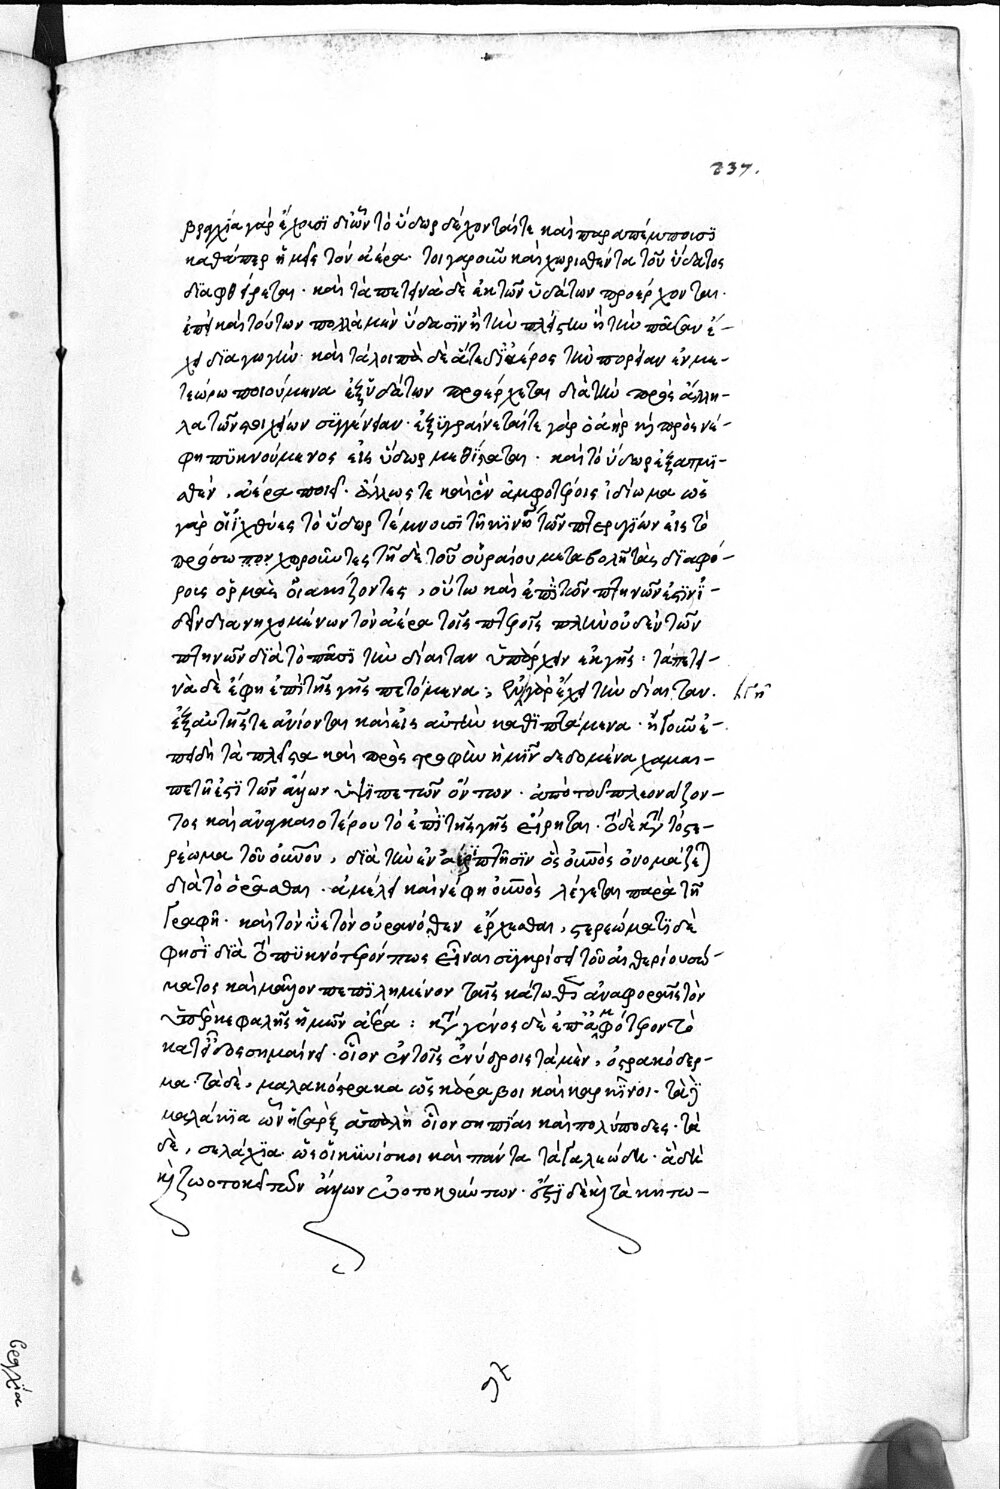 237.
βραχία γὰρ ἔχουσι δι' ὧν τὸ ὕδωρ δέχονταί τε καὶ παραπέμπουσι
καθάπερ ἡμεῖς τὸν ἀέρα· τοιγαροῦν καὶ χωρισθέντα τοῦ ὕδατος
διαφθείρεται· καὶ τὰ πετεινὰ δὲ ἐκ τῶν ὑδάτων προέρχονται·
ἐπεὶ καὶ τούτων πολλὰ μὲν ὕδασιν ἢ τὴν πλείστην ἢ τὴν πᾶσαν ἔ-
χει διαγωγήν· καὶ τὰ λοιπὰ δὲ ἅτε δι' ἀέρος τὴν πορείαν ἐν με-
τεώρω ποιούμενα ἐξ ὑδάτων προέρχεται διὰ τὴν πρὸς ἄλλη-
λα τῶν στοιχείων συγγένειαν· ἐξυγραίνεταί τε γὰρ ὁ ἀὴρ καὶ πρὸς νέ-
φη πυκνούμενος εἰς ὕδωρ μεθίσταται· καὶ τὸ ὕδωρ ἐξατμι-
σθὲν, ἀέρα ποιεῖ· ἄλλως τε καὶ ἐν ἀμφοτέροις ἰδίωμα ὡς
γὰρ οἱ ἰχθύες τὸ ὕδωρ τέμνουσι τῆ κινήσει τῶν πτερυγίων εἰς τὸ
πρόσω προχωροῦντες τῆ δὲ τοῦ οὐραίου μεταβολῆ τὰς διαφό-
ρους ὁρμὰς οἰακίζοντες, οὕτω καὶ ἐπὶ τῶν πτηνῶν ἐστὶν ἰ-
δεῖν διανηχομένων τὸν ἀέρα τοῖς πτεροῖς πλὴν οὐδὲν τῶν
πτηνῶν διὰ τὸ πᾶσι τὴν δίαιταν ὑπάρχειν ἐκ γῆς: τὰ πετει-
νὰ δὲ ἔφη ἐπὶ τῆς γῆς πετόμενα; γὰρ ἔχει τὴν δίαιταν.
ἐξ αὐτῆς τε ἀνίονται καὶ εἰς αὐτὴν καθιπτάμενα· ἤγουν ἐ-
πειδὴ τὰ πλεῖστα καὶ πρὸς τροφὴν ἡμῖν δεδομένα χαμαι-
πετῆ ἐστὶ τῶν ἄλλων ὑψιπετῶν ὄντων· ἀπὸ τοῦ πλεονάζον-
τος καὶ ἀναγκαιοτέρου τὸ ἐπὶ τῆς γῆς εἴρηται· τὸ δὲ κατὰ τὸ στε-
ρέωμα τοῦ οὐρανοῦ, διὰ τὴν ἐν ἀέρι πτῆσιν ὃς οὐρανὸς ὀνομάζεται
διὰ τὸ ὁρᾶσθαι· ἀμέλει καὶ νέφη οὐρανὸς λέγεται παρὰ τῆ
Γραφῆ· καὶ τὸν ὑετὸν οὐρανόθεν ἔρχεσθαι, στερεώματι δὲ
φησὶ διὰ τὸ πυκνότερόν πως εἶναι συγκρίσει τοῦ αἰθερίου σώ-
ματος καὶ μᾶλλον πεπιλημένον ταῖς κάτωθεν ἀναφοραῖς τὸν
ὑπὲρ κεφαλῆς ἡμῶν ἀέρα: κατὰ γένος δὲ ἐπ' ἀμφότερον τὸ
κατ' εἶδος σημαίνει· οἷον ἐν τοῖς ἐνύδροις τὰ μὲν, ὀστρακόδερ-
μα· τὰ δὲ, μαλακόστρακα ὡς κάραβοι καὶ καρκῖνοι· τὰ δὲ
μαλάκια ὧν ἡ σὰρξ ἁπαλὴ οἷον σηπίαι καὶ πολύποδες· τὰ
δὲ, σελάχια ὡς οἱ κυνίσκοι καὶ πάντα τὰ γαλεώδη· ἃ δὴ
καὶ ζωοτοκεῖ τῶν ἄλλων ὠοτοκούντων· ἔστι δὲ καὶ τὰ κητώ-
βραχία